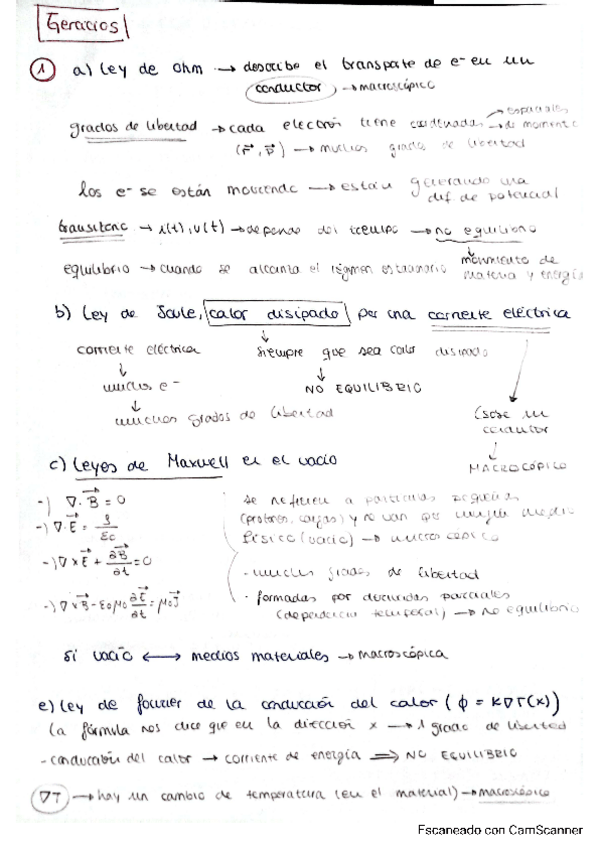 Ejercicios
1 a) Ley de Ohm → describe el transporte de e- en un
conductor → macroscópico
grados de libertad → cada electrón tiene coordenadas → espaciales
→ de momento
(r⃗, p⃗) → muchos grados de libertad
los e- se están moviendo → están generando una
dif. de potencial
transitorio → i(t), v(t) → depende del tiempo → no equilibrio
movimiento de
materia y energía
equilibrio → cuando se alcanza el régimen estacionario
b) Ley de Joule, calor disipado por una corriente eléctrica
corriente eléctrica
↓
muchos e-
↓
muchos grados de libertad
siempre que sea calor disipado
↓
NO EQUILIBRIO
un
conductor
↓
MACROSCÓPICO
c) Leyes de Maxwell en el vacío
-) ∇·B⃗ = 0
-) ∇·E⃗ = ρ/ε0
-) ∇×E⃗ + ∂B⃗/∂t = 0
-) ∇×B⃗ - ε0μ0 ∂E⃗/∂t = μ0J⃗
se refieren a partículas pequeñas
(protones, cargas) y no van que medio
físico (vacío) → microscópico
- muchos grados de libertad
· formadas por derivadas parciales
(dependencia temporal) → no equilibrio
Si vacío ⟷ medios materiales → macroscópica
e) Ley de Fourier de la conducción del calor (ϕ = K∇T(x))
La fórmula nos dice que en la dirección x → 1 grado de libertad
- conducción del calor → corriente de energía ⇒ NO EQUILIBRIO
∇T → hay un cambio de temperatura (en el material) → macroscópico
Escaneado con CamScanner